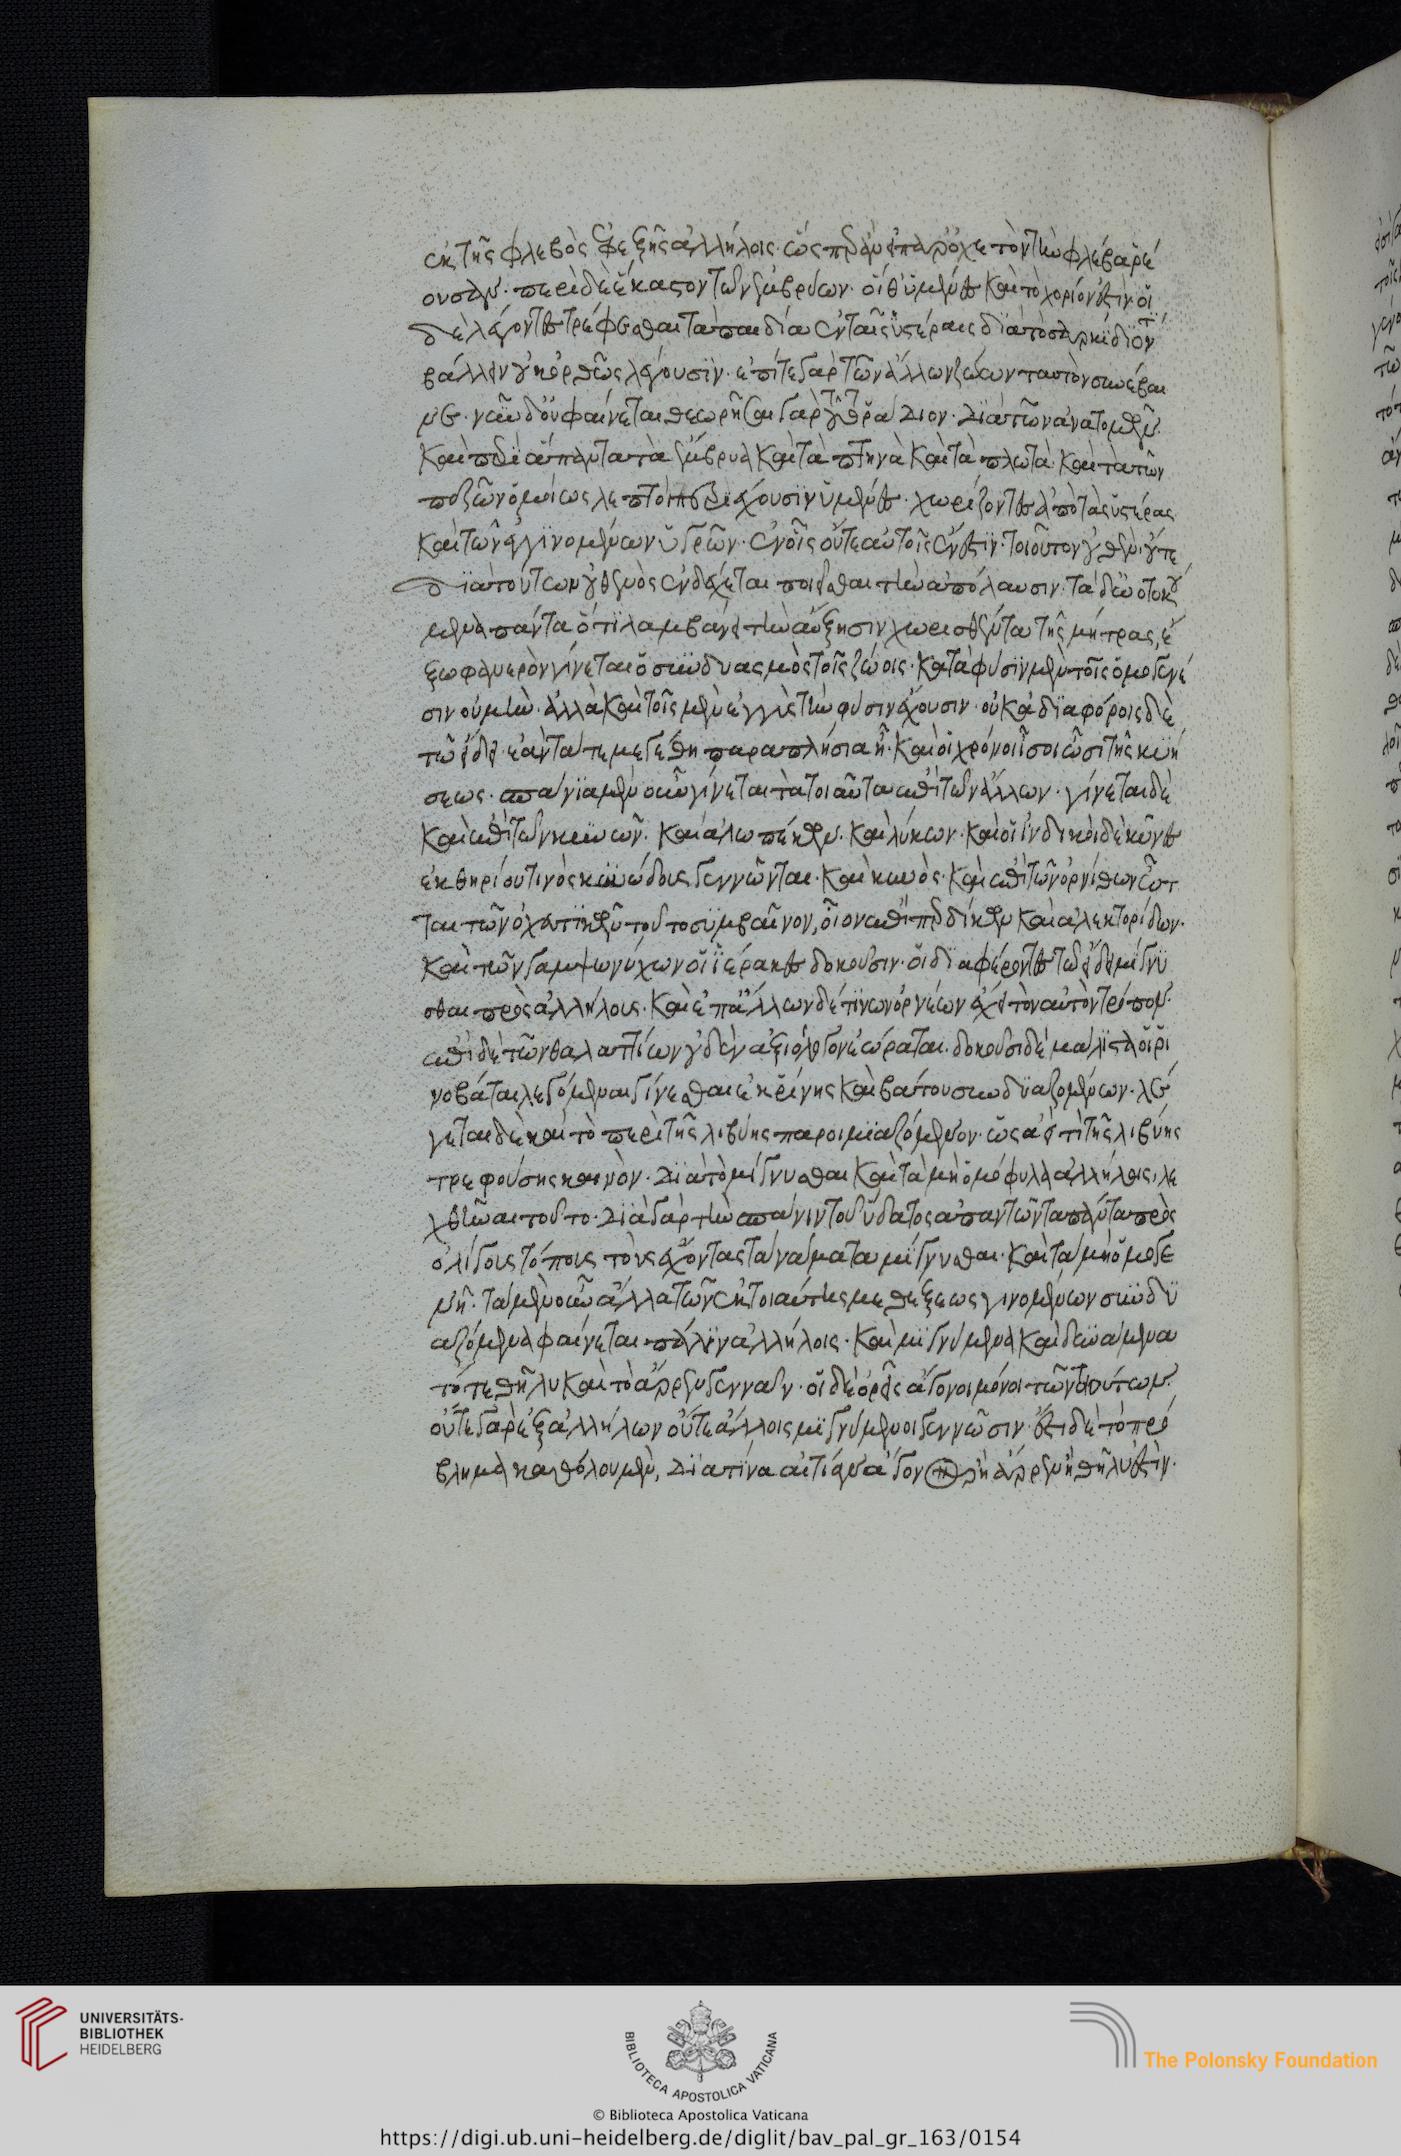 ἐκ τῆς φλεβὸς ἐφεξῆς ἀλλήλοις· ὡς παρ' ὀχετὸν τὴν φλέβα ῥέ
ουσαν· περὶ δὲ ἕκαστον τῶν ἐμβρύων· οἵ θ' ὑμένες καὶ τὸ χορίον ἐστὶν· οἱ
δὲ λέγοντες τρέφεσθαι τὰ παιδία ἐν ταῖς ὑστέραις διὰ τὸ σαρκίδιόν τι
βάλλειν οὐκ ὀρθῶς λέγουσιν· ἐπί τε γὰρ τῶν ἄλλων ζώων ταυτὸν συνέβαι
νε· νῦν δ' οὐ φαίνεται θεωρῆσαι γὰρ τοῦτο ῥάδιον· διὰ τῶν ἀνατομῶν·
καὶ περὶ ἅπαντα τὰ ἔμβρυα καὶ τὰ πτηνὰ καὶ τὰ πλωτὰ καὶ τὰ τῶν
πεζῶν ὁμοίως λεπτοὶ περιέχουσιν ὑμένες· χωρίζοντες ἀπὸ τὰς ὑστέρας
καὶ τῶν ἐγγινομένων ὑγρῶν· ἐν οἷς οὔτε αὐτοῖς ἔνεστιν· τοιοῦτον οὐθέν· οὔτε
διὰ τούτων οὐθενὸς ἐνδέχεται ποιεῖσθαι τὴν ἀπόλαυσιν· τὰ δ' ὠοτοκού
μενα πάντα ὅτι λαμβάνει τὴν αὔξησιν χωρισθέντα τῆς μήτρας, ἔ
ξω φανερὸν γίνεται ὁ συνδυασμὸς τοῖς ζώοις· κατὰ φύσιν μὲν τοῖς ὁμογενέ
σιν οὐμὴν· ἀλλὰ καὶ τοῖς μὲν ἐγγὺς τὴν φύσιν ἔχουσιν· οὐκ ἀδιαφόροις δὲ
τῶ εἴδει· ἐὰν τά τε μεγέθη παραπλήσια ἦ· καὶ οἱ χρόνοι ἴσοι ὦσι τῆς κυή
σεως· σπάνια μὲν οὖν γίνεται τὰ τοιαῦτα ἐπὶ τῶν ἄλλων· γίνεται δὲ
καὶ ἐπὶ τῶν κυνῶν· καὶ ἀλωπέκων· καὶ λύκων· καὶ οἱ ἰνδικοὶ δὲ κύνες
ἐκ θηρίου τινὸς κυνώδους γεννῶνται· καὶ κυνὸς· καὶ ἐπὶ τῶν ὀρνίθων ὦπτ
ται τῶν ὀχευτικῶν τοῦτο συμβαῖνον, οἷον ἐπὶ περδίκων καὶ ἀλεκτορίδων·
καὶ τῶν γαμψωνύχων οἱ ἱέρακες δοκοῦσιν· οἱ διαφέροντες τῶ εἴδει μίγνυ
σθαι πρὸς ἀλλήλους· καὶ ἐπ' ἄλλων δέ τινων ὀρνέων ἔχει τὸν αὐτὸν τρόπον·
ἐπὶ δὲ τῶν θαλαττίων οὐδὲν ἀξιόλογον ἑώραται· δοκοῦσι δὲ μάλιστα οἱ ῥι
νοβάται λεγόμεναι γίνεσθαι ἐκ ῥίνης καὶ βάτου συνδυαζομένων· λέ
γεται δὲ καὶ τὸ περὶ τῆς λιβύης παροιμιαζόμενον· ὡς ἀεί τι τῆς λιβύης
τρεφούσης καινὸν· διὰ τὸ μίγνυσθαι καὶ τὰ μὴ ὁμόφυλα ἀλλήλοις, λε
χθῆναι τοῦτο· διὰ γὰρ τὴν σπάνιν τοῦ ὕδατος ἀπαντῶντα πάντα πρὸς
ὀλίγους τόπους τοὺς ἔχοντας τὰ νάματα μίγνυσθαι· καὶ τὰ μὴ ὁμογε
νῆ· τὰ μὲν οὖν ἄλλα τῶν ἐκ τοιαύτης μίξεως γινομένων συνδυ
αζόμενα φαίνεται πάλιν ἀλλήλοις· καὶ μιγνύμενα καὶ δυνάμενα
τό τε θῆλυ καὶ τὸ ἄρρεν γεννᾶν· οἱ δὲ ὀρεῖς ἄγονοι μόνοι τῶν τοιούτων·
οὔτε γὰρ ἐξ ἀλλήλων οὔτε ἄλλοις μιγνύμενοι γεννῶσιν· ἔστι δὲ τὸ πρό
βλημα καθόλου μὲν, διὰ τίνα αἰτίαν ἄγονον ἢ ἄρρεν ἢ θῆλυ ἐστὶν·
UNIVERSITÄTS-
BIBLIOTHEK
HEIDELBERG
BIBLIOTECA APOSTOLICA VATICANA
The Polonsky Foundation
© Biblioteca Apostolica Vaticana
https://digi.ub.uni-heidelberg.de/diglit/bav_pal_gr_163/0154